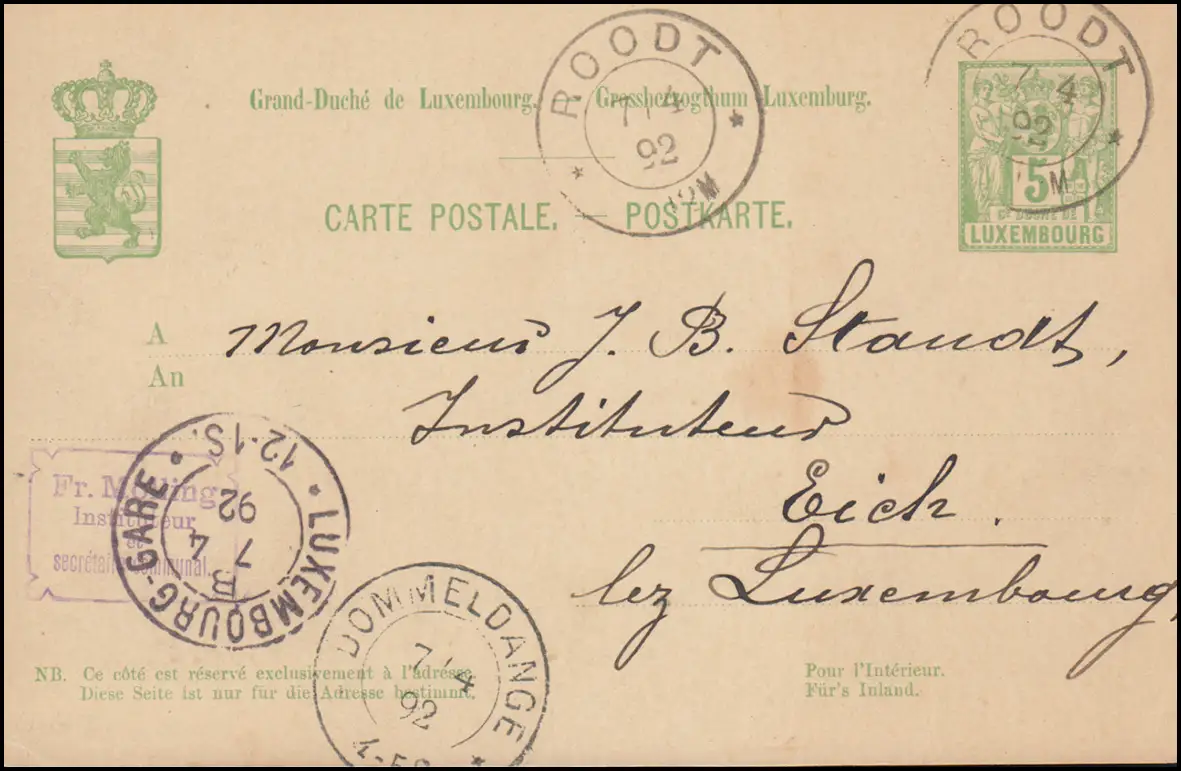 ROODT
7 4
92
12M
ROODT
7 4
92
M
Grand-Duché de Luxembourg. Grossherzogthum Luxemburg.
CARTE POSTALE. — POSTKARTE.
5
GD DUCHÉ DE
LUXEMBOURG
A
An
Monsieur J. B. Staudt,
Instituteur
Eich.
lez Luxembourg
Fr. Molling
Instituteur
et
secrétaire communal.
LUXEMBOURG-GARE
12-1S.
92
7 4
B
DOMMELDANGE
7 4
92
NB. Ce côté est réservé exclusivement à l'adresse.
Diese Seite ist nur für die Adresse bestimmt.
Pour l'Intérieur.
Für's Inland.